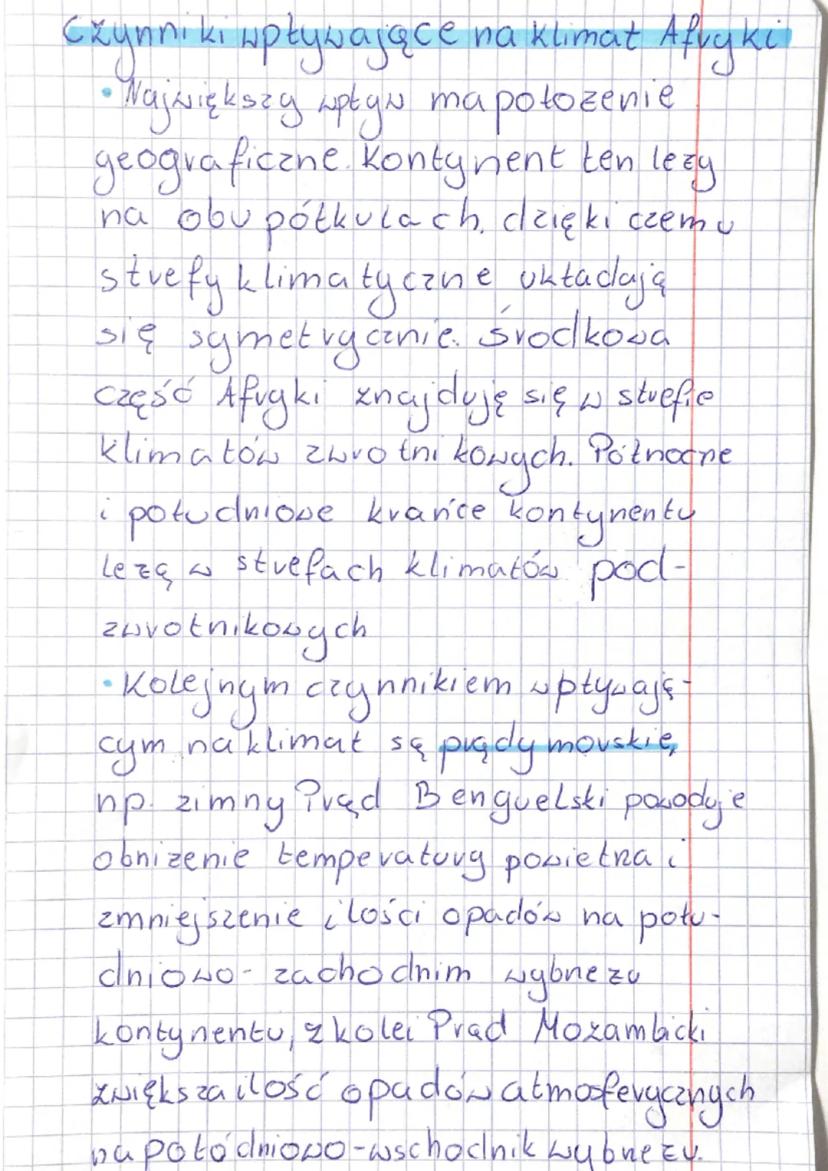 Czynniki wpływające na klimat Afryki
• Największy wpływ ma położenie
geograficzne. Kontynent ten leży
na obu półkulach, dzięki czemu
strefy klimatyczne układają
się symetrycznie. Środkowa
część Afryki znajduję się w strefie
klimatów zwrotnikowych. Północne
i południowe krańce kontynentu
leżą w strefach klimatów pod-
zwrotnikowych
• Kolejnym czynnikiem wpływają-
cym na klimat są prądy morskie,
np. zimny Prąd Benguelski powoduje
obniżenie temperatury powietrza i
zmniejszenie ilości opadów na połu-
dniowo-zachodnim wybrzeżu
kontynentu, z kolei Prąd Mozambicki
zwiększa ilość opadów atmosferycznych
na połódniowo-wschodnik wybrzeżu.